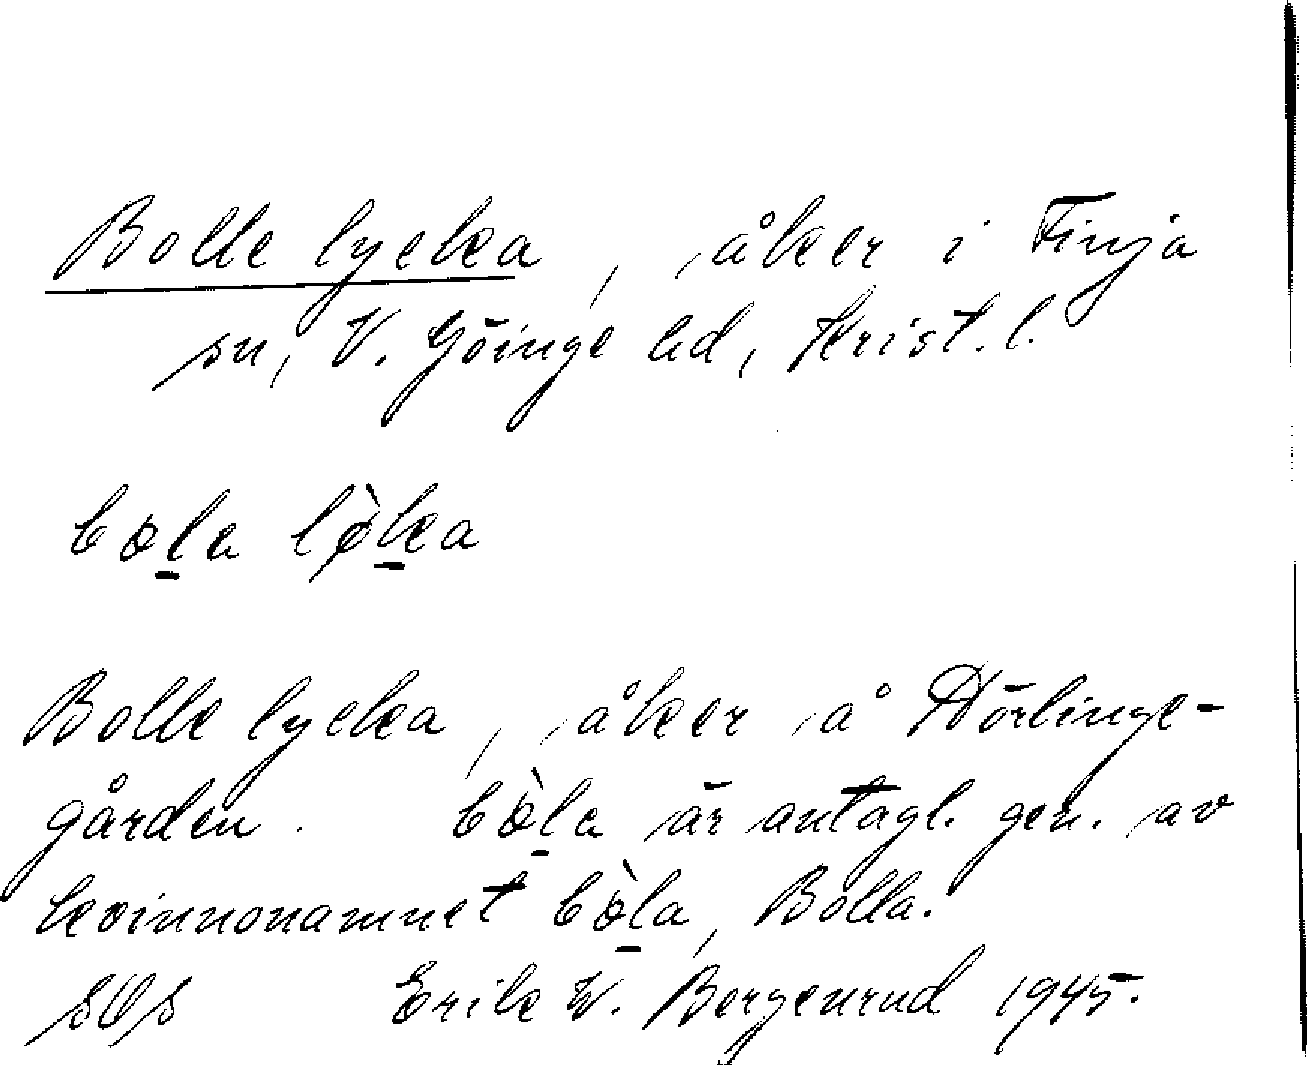 Bolle lycka, åker i Finja
sn, V. Göinge hd, Krist. l.
bola løka
Bolle lycka, åker å Dörlinge-
gården. bòlа är antagl. gen. av
kvinnonamnet bòla, Bolla.
Erik W. Bergenrud 1945.